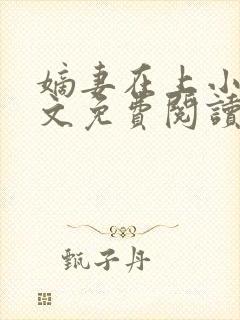 嫡妻在上小
文免費閱讀
甄子丹